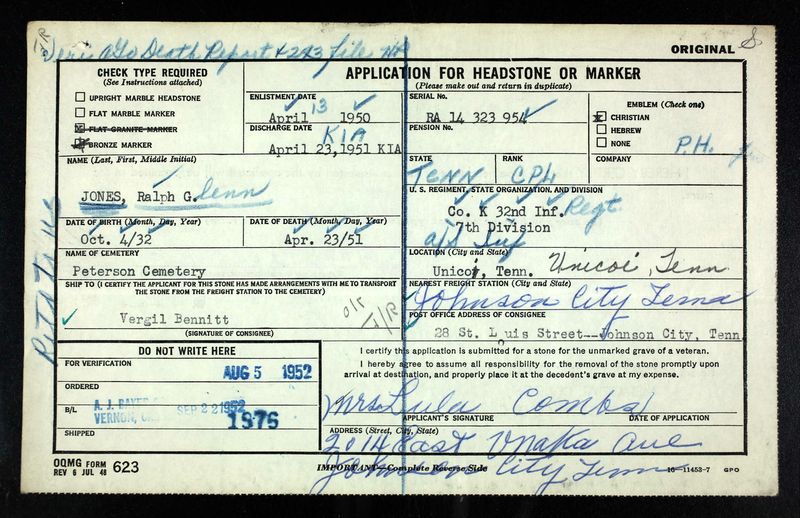 Death Report + 293 File
ORIGINAL S
CHECK TYPE REQUIRED
(See Instructions attached)
UPRIGHT MARBLE HEADSTONE
FLAT MARBLE MARKER
FLAT GRANITE MARKER
BRONZE MARKER
APPLICATION FOR HEADSTONE OR MARKER
(Please make out and return in duplicate)
ENLISTMENT DATE
April 13 1950
DISCHARGE DATE
KIA
April 23, 1951 KIA
SERIAL No.
RA 14 323 954
PENSION No.
EMBLEM (Check one)
CHRISTIAN
HEBREW
NONE
P.H.
NAME (Last, First, Middle Initial)
JONES, Ralph G. lenn
STATE
TENN
RANK
CPL
COMPANY
U. S. REGIMENT, STATE ORGANIZATION, AND DIVISION
Co. K 32nd Inf. Regt
7th Division
Inf
DATE OF BIRTH (Month, Day, Year)
Oct. 4/32
DATE OF DEATH (Month, Day, Year)
Apr. 23/51
NAME OF CEMETERY
Peterson Cemetery
LOCATION (City and State)
Unicoi, Tenn. Unicoi, Tenn
SHIP TO (I CERTIFY THE APPLICANT FOR THIS STONE HAS MADE ARRANGEMENTS WITH ME TO TRANSPORT
THE STONE FROM THE FREIGHT STATION TO THE CEMETERY)
Vergil Bennitt
(SIGNATURE OF CONSIGNEE)
NEAREST FREIGHT STATION (City and State)
Johnson City Tenn
POST OFFICE ADDRESS OF CONSIGNEE
28 St. Luis Street--Johnson City, Tenn
DO NOT WRITE HERE
FOR VERIFICATION
AUG 5 1952
ORDERED
B/L
A. J. BAYER
VERNON,
SEP 22 1952
1976
SHIPPED
I certify this application is submitted for a stone for the unmarked grave of a veteran.
I hereby agree to assume all responsibility for the removal of the stone promptly upon
arrival at destination, and properly place it at the decedent's grave at my expense.
Mrs Lula Combs
APPLICANT'S SIGNATURE
DATE OF APPLICATION
ADDRESS (Street, City, State)
2014 East Unaka Ave
Johnson City Tenn
OQMG FORM
REV 6 JUL 48
623
IMPORTANT—Complete Reverse Side
16—11453-7 GPO